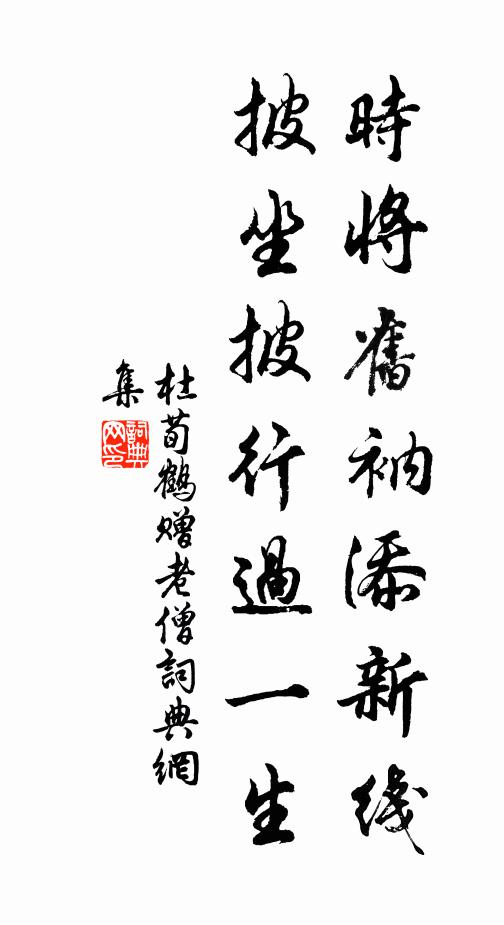 時將舊衲添新綫
披坐披行過一生
杜荀鶴贈老僧詞典網
集
詞典
网印